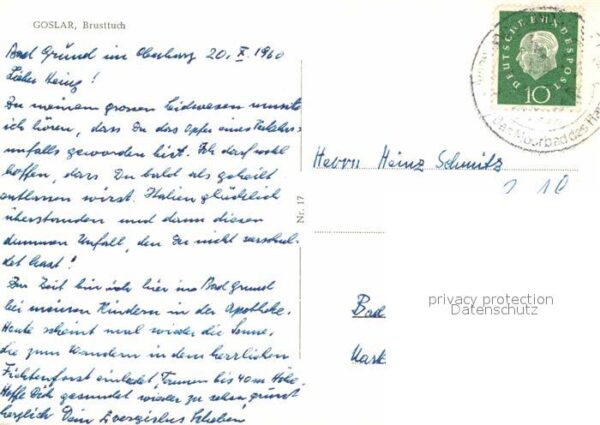 GOSLAR, Brusttuch
Bad Grund im Oberharz 20. X. 1960
Lieber Heinz!
Zu meinem grossen Leidwesen musste
ich hören, dass Du das Opfer eines Verkehrs-
unfalls geworden bist. Ich darf wohl
hoffen, dass Du bald als geheilt
entlassen wirst. Italien glücklich
überstanden und dann diesen
dummen Unfall, den Du nicht verschul-
det hast!
Zur Zeit bin ich hier in Bad Grund
bei meinen Kindern in der Apotheke.
Heute scheint mal wieder die Sonne,
die zum Wandern in dem herrlichen
Fichtenforst einladet, Tannen bis 40 m Höhe
Hoffe Dich gesundet wieder zu sehen, grüsst
herzlich Dein
Nr. 17
DEUTSCHE BUNDESPOST
10
das Moorbad des Ha
Herrn Heinz Schmitz
Bad
privacy protection
Datenschutz